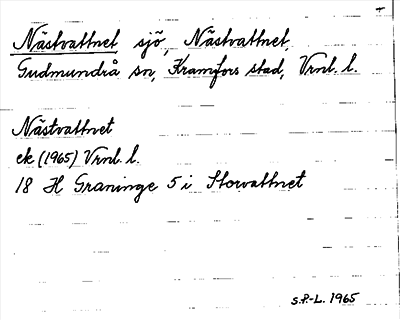 Nästvattnet sjö, Nästvattnet,
Gudmundrå sn, Kramfors stad, Vrnl. l.
Nästvattnet
ek (1965) Vrnl. l.
18 H Graninge 5 i Storvattnet
S.P.-L. 1965